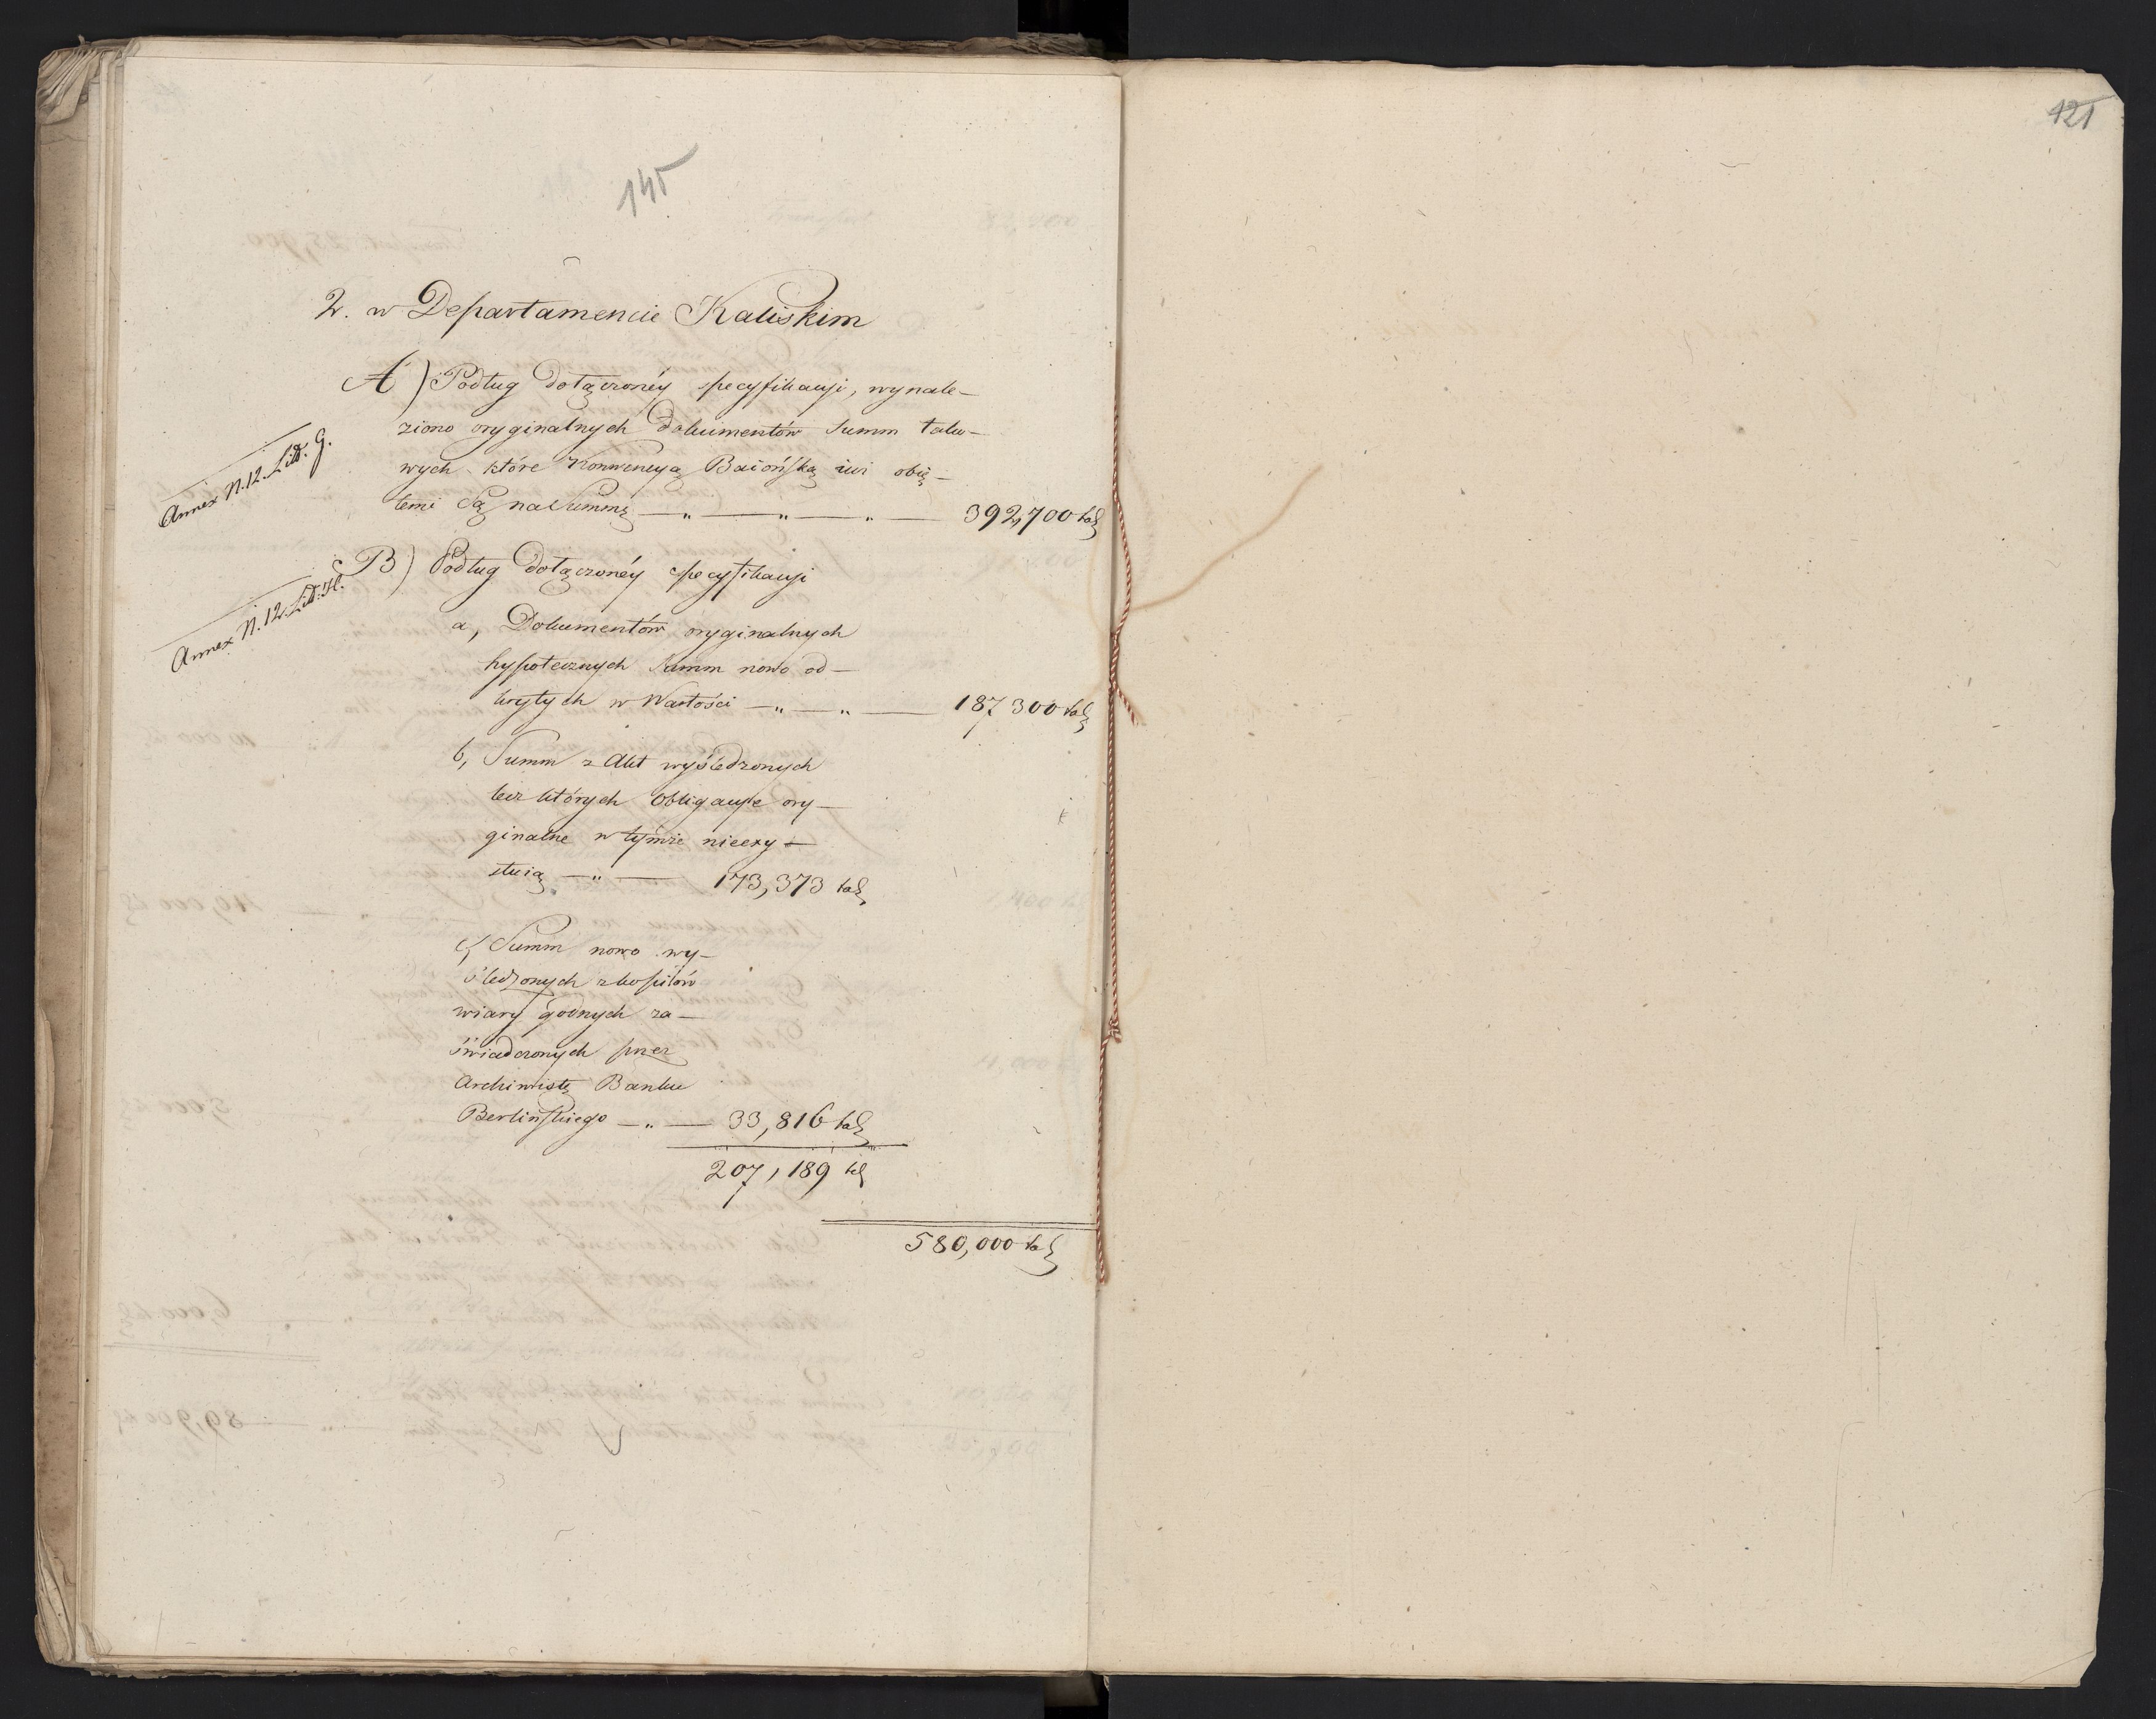 121
145
2. w Departamencie Kaliskim
A) Podług dołączonéy specyfikacyi, wynale-
ziono oryginalnych Dokumentów Summ talo-
wych które Konwencyą Baiońską iuż obię-
temi są na Summę — „ — „ — „ — 392,700 tal
Annex N. 12. Litt. G.
B) Podług dołączonéy specyfikacyi
Annex N. 12. Litt. H.
a, Dokumentów oryginalnych
hypotecznych Summ nowo od-
krytych w Wartości — „ — „ — 187,300 tal
b, Summ z Akt wyśledzonych
lecz których Obligacye ory-
ginalne w tymże nieexy-
stuią — „ — 173,373 tal
c, Summ nowo wy-
śledzonych z kopiiów
wiary godnych za-
świadczonych przez
Archiwistę Banku
Berlińskiego — „ — 33,816 tal
207,189 tal
580,000 tal